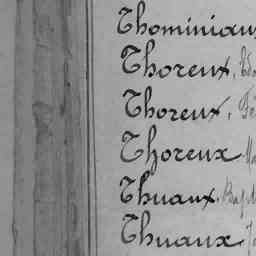 Thominiaux
Thoreux,
Thoreux,
Thoreux
Thuaux.
Thuaux